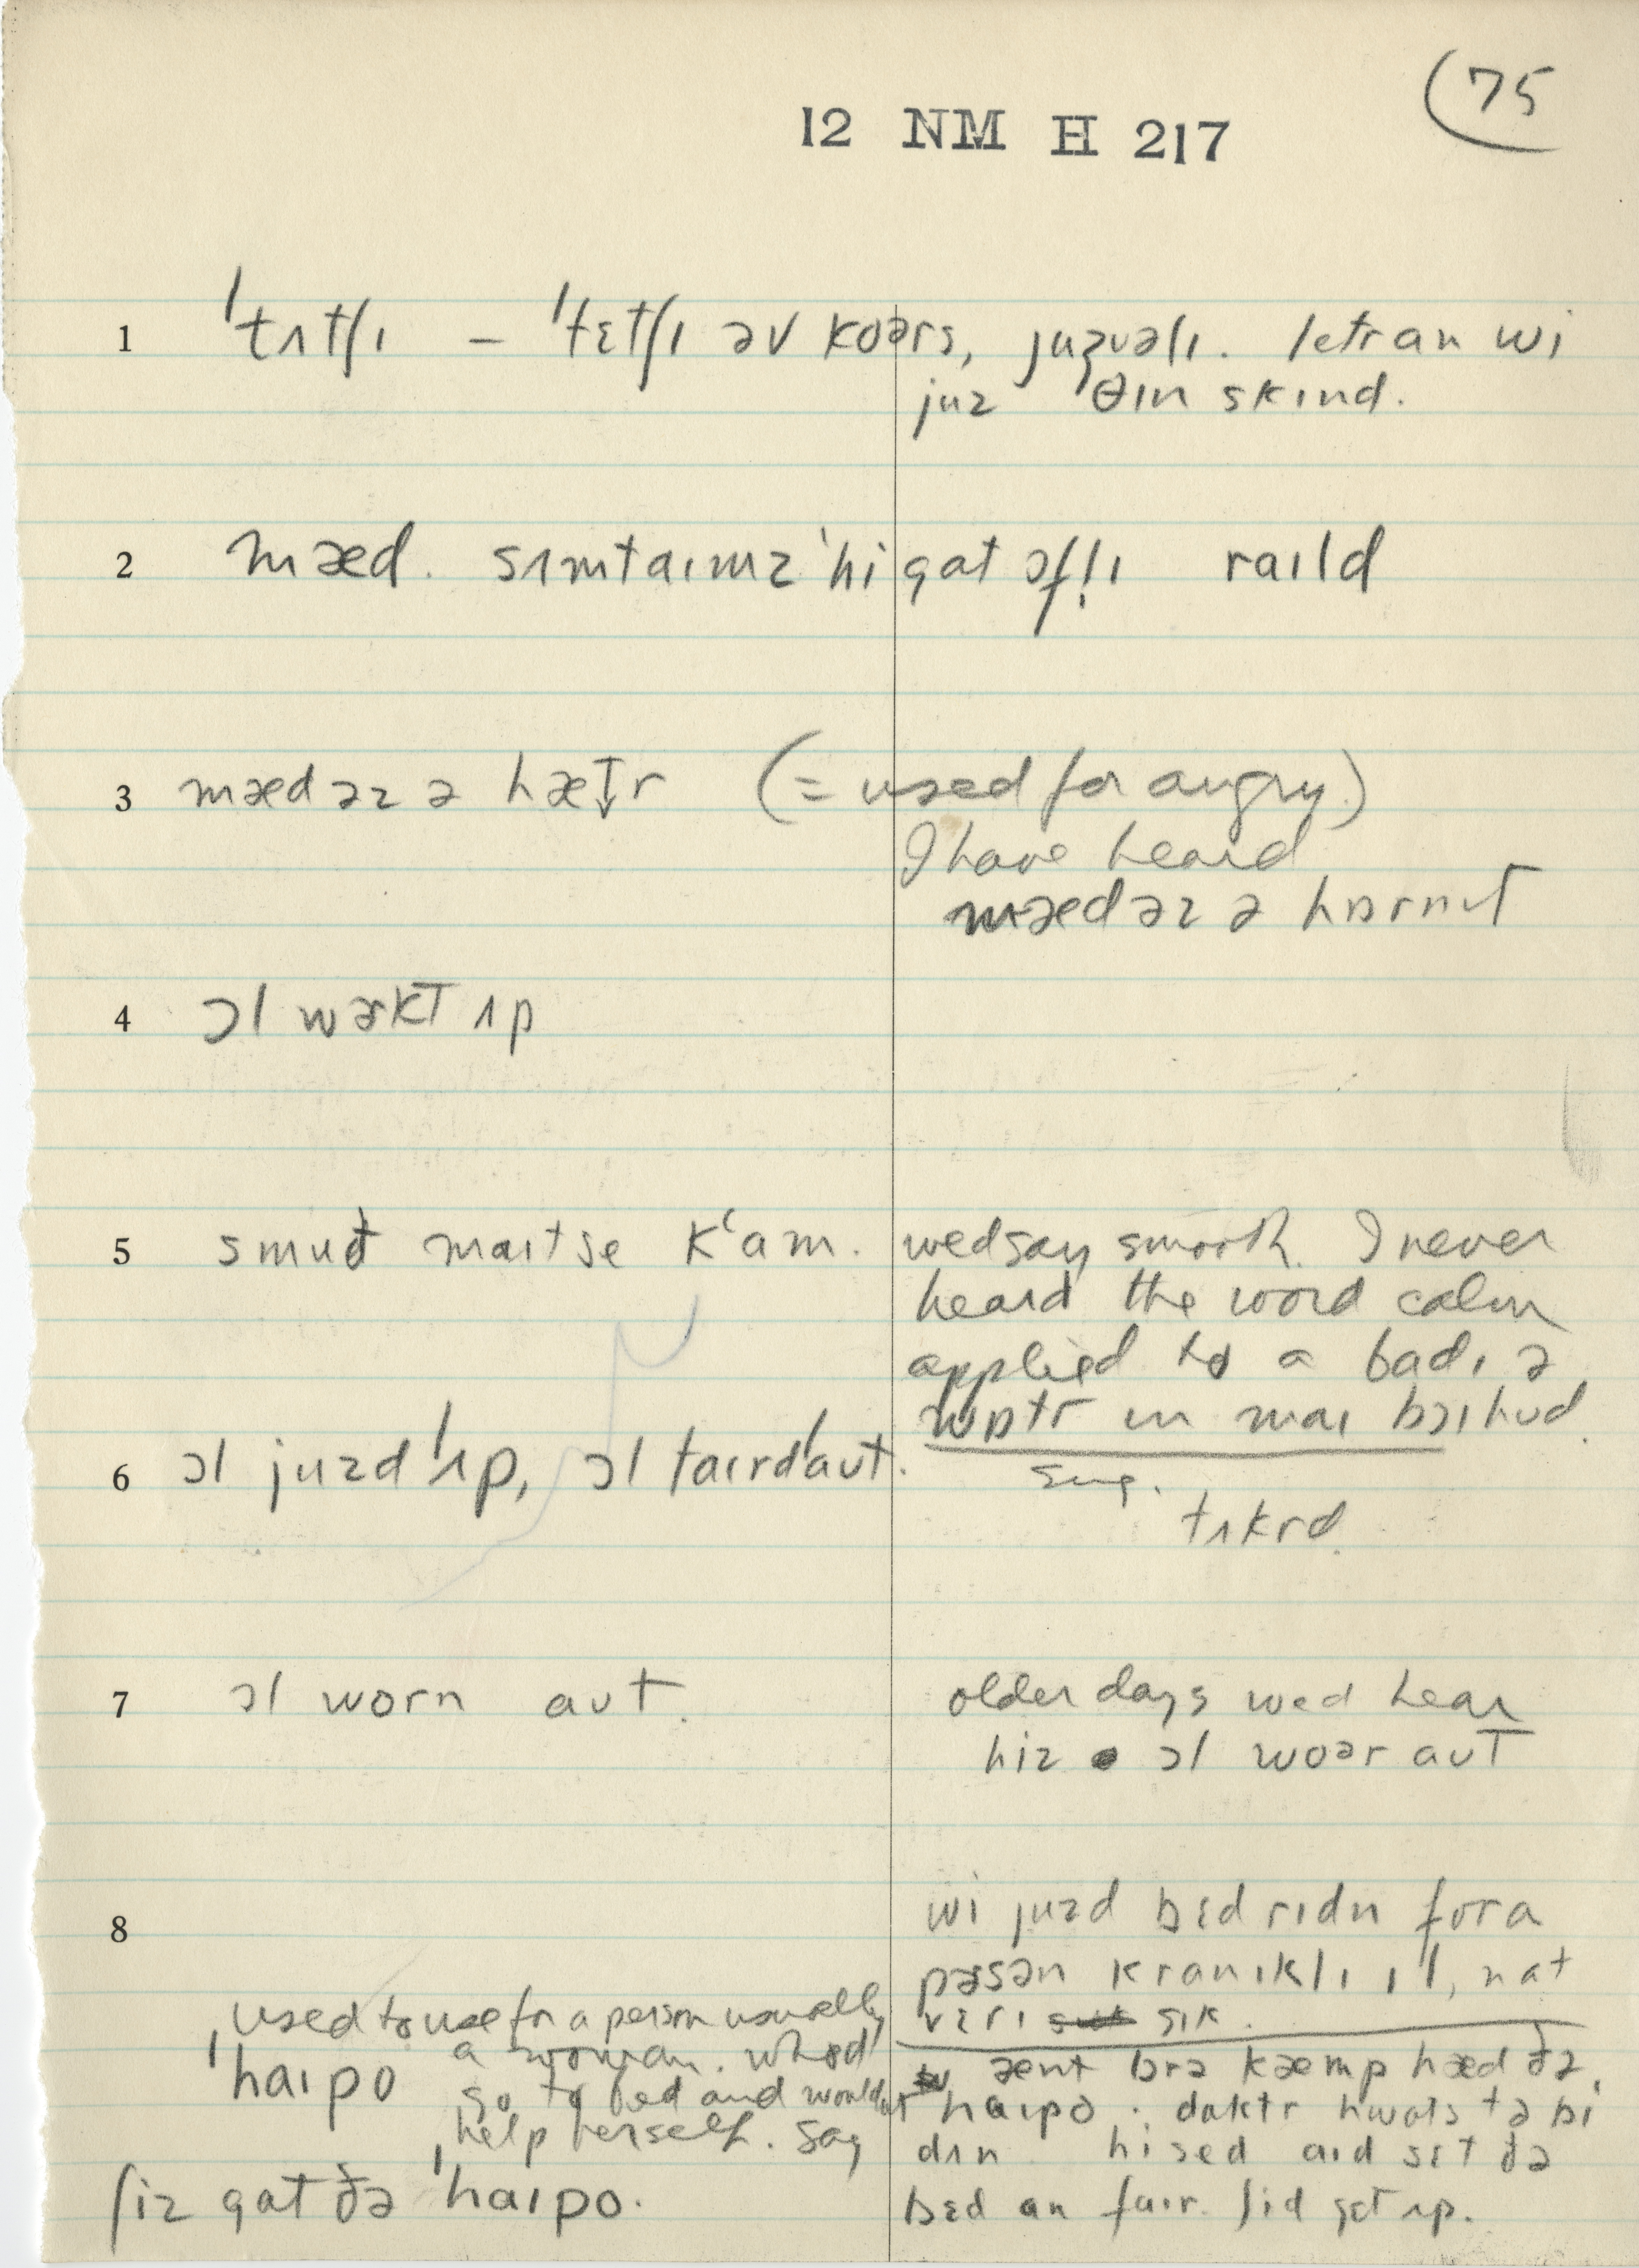 (75
12 NM H 217
1 ˈtʌtʃɪ – ˈtɛtʃɪ əv koərs, juʒuəlɪ. letran wi
juz θɪn skɪnd.
2 mæd. sʌmtaɪmz ˈhi gat ɔfl̩ɪ raɪld
3 mæd əz ə hæt↓r (= used for angry)
I have heard
mæd əz ə hɒrnɪt
4 ɔl wɚkt ʌp
5 smuð maɪt se kʻam. wed say smooth. I never
heard the word calm
applied to a badɪ ə
wɒtr in maɪ bɔɪhud.
6 ɔl juzd ˈʌp, ɔl taɪrdˈaut. sug.
tʌkrd.
7 ɔl worn aut. older days wed hear
hiz ɔl woər aut
8 wi juzd bɛd rɪdn for a
pɚsən kranɪklɪ ɪl, nat
vɛrɪ sɪk.
used to use for a person usually
a woman. whod
ˈhaɪpo go to bed and wouldnt
help herself. say
ʃiz gat ðə ˈhaɪpo.
ænt brə kæmp hæd ðə
ˈhaɪpo. daktr hwats tə bi
dʌn hi sed aɪd sɛt ðə
bɛd an faɪr. ʃid gɛt ʌp.